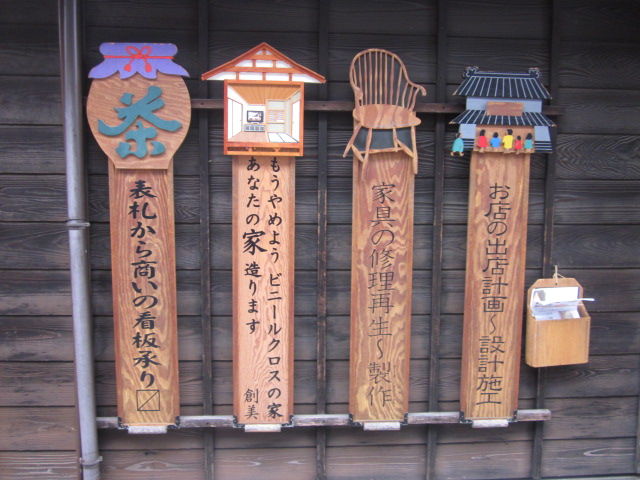 茶
表札から商いの看板承り〼
もうやめよう ビニールクロスの家
あなたの家造ります
創美
家具の修理再生～製作
お店の出店計画～設計施工